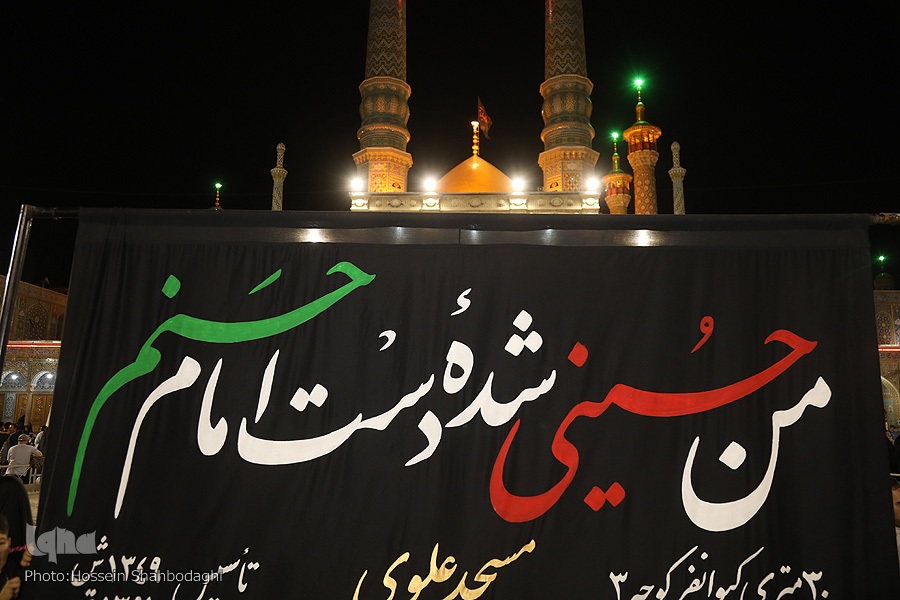 من حُسینی شدهٔ دست امام حسنم
۳۰ متری کیوانفر کوچه ۳
مسجد علوی
تأسیس ۱۳۶۹ ش
iqna
Photo:Hossein Shanbodaghi